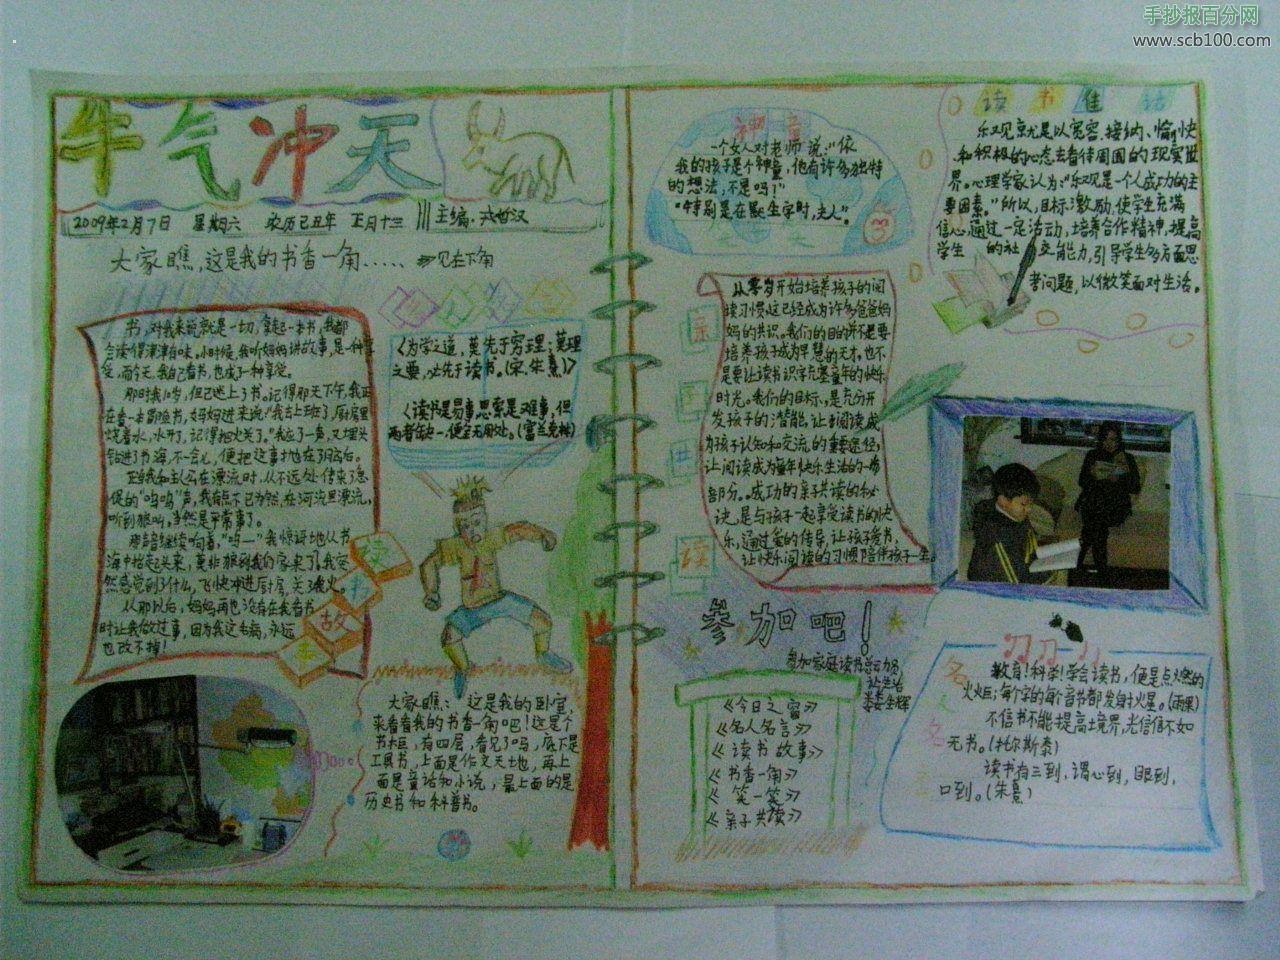 手抄报百分网
www.scb100.com
牛气冲天
2009年2月7日 星期六 农历己丑年 正月十三
主编:
大家瞧,这是我的书香一角…… 见左下角
书,对我来说就是一切,拿起一本书,我都
会读得津津有味,小时候,我听妈妈讲故事,是一种享
受,而今天,我自己看书,也成了一种享受。
那时我10岁,但已迷上了书。记得那天下午,我正
在看一本冒险书,妈妈进来说:“我去上班了,厨房里
烧着水,水开了,记得把火关了。”我应了一声,又埋头
钻进了书海,不一会儿,便把这事抛在了脑后。
正当我和主人公在漂流时,从不远处传来了急
促的“呜呜”声,我有点不以为然,在河流里漂流,
听到狼叫,当然是平常事了。
那声音继续响着,“呜——”我惊讶地从书
海中抬起头来,莫非狼到我们家来了?我突
然感觉到了什么,飞快冲进厨房,关了火。
从那以后,妈妈再也没有在我看书
时让我做过事,因为我这毛病,永远
也改不掉!
读书故事
《为学之道,莫先于穷理;莫理
之要,必先于读书。(宋·朱熹)》
《读书是易事,思索是难事,但
两者缺一,便全无用处。(富兰克林)
大家瞧:这是我的卧室,
来看看我的书香一角吧!这是个
书柜,有四层,看见了吗,底下是
工具书,上面是作文天地,再上
面是童话和小说,最上面的是
历史书和科普书。
神童
一个女人对老师说:“依
我的孩子是个神童,他有许多独特
的想法,不是吗?”
“特别是在默生字时,夫人”。
亲子共读
从零岁开始培养孩子的阅
读习惯,这已经成为许多爸爸妈
妈的共识。我们的目的并不是要
培养孩子成为早慧的天才,也不
是要让读书识字充塞童年的快乐
时光。我们的目标,是充分开
发孩子的潜能,让阅读成
为孩子认知和交流的重要途径,
让阅读成为童年快乐生活的一
部分。成功的亲子共读的秘
诀,是与孩子一起享受读书的快
乐,通过爱的传导,让孩子爱书,
让快乐阅读的习惯陪伴孩子一生。
读书佳话
乐观就是以宽容、接纳、愉快
和积极的心态去看待周围的现实世
界。心理学家认为:“乐观是一个人成功的主
要因素。”所以,目标激励,使学生充满
信心,通过一定活动,培养合作精神,提高
学生的社交能力,引导学生多方面思
考问题,以微笑面对生活。
参加吧!
参加家庭读书
让生活
《今日之窗》
《名人名言》
《读书故事》
《书香一角》
《笑一笑》
《亲子共读》
名人名言
教育!科学!学会读书,便是点燃的
火炬;每个字的每个音节都发射火星。(雨果)
不信书不能提高境界,光信信不如
无书。(托尔斯泰)
读书有三到,谓心到,眼到,
口到。(朱熹)